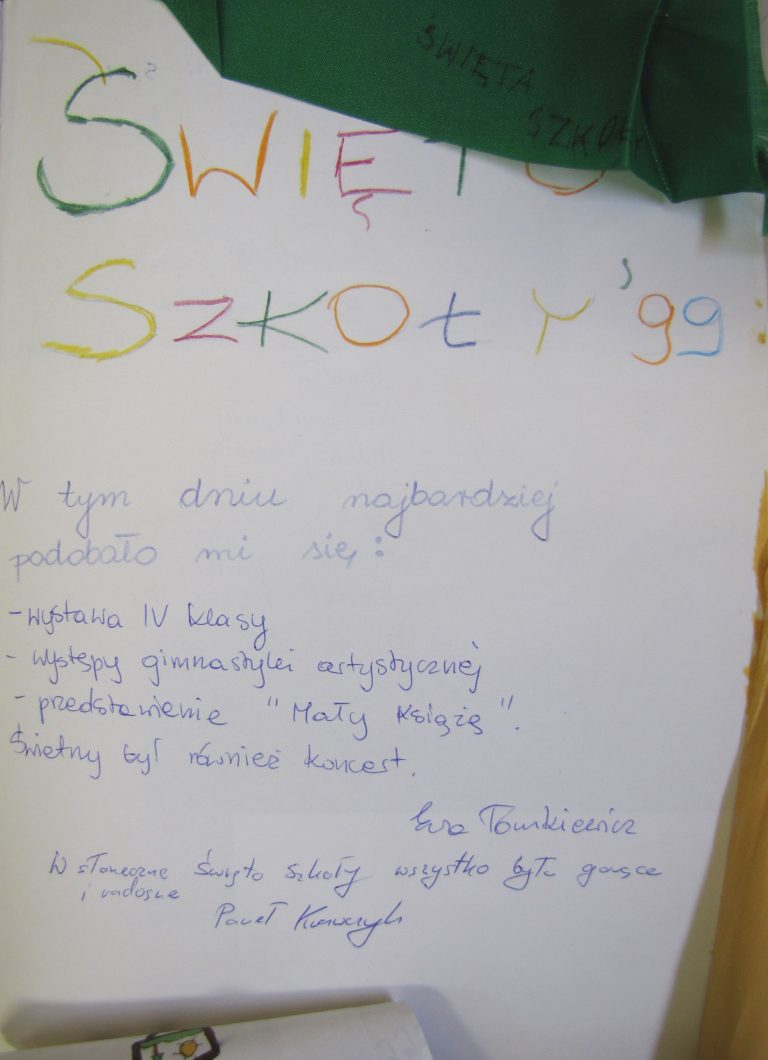 ŚWIĘTA
SZKOŁY
ŚWIĘTO
SZKOŁY '99
W tym dniu najbardziej
podobało mi się:
- wystawa IV klasy
- występy gimnastyki artystycznej
- przedstawienie "Mały książę".
Świetny był również koncert.
Ewa
W słoneczne Święto Szkoły wszystko było gorące
i radosne
Paweł